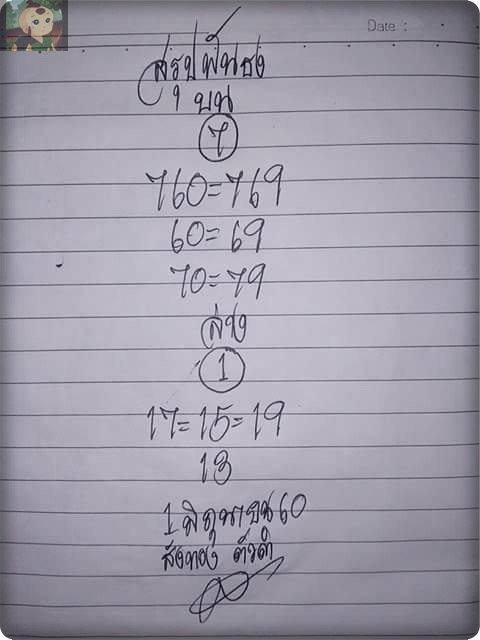 Date :
สรุปฟันธง
1 บน
7
760=769
60=69
70=79
ล่าง
1
17=15=19
13
1 มิถุนายน 60
สังทอง ตัวดำ